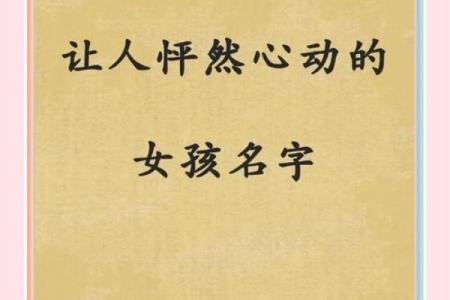 让人怦然心动的
女孩名字